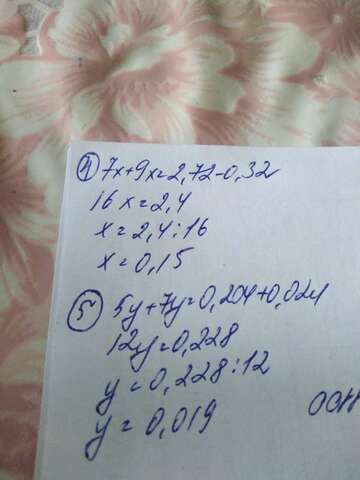 4 7x+9x=2,72-0,32
16x=2,4
x=2,4:16
x=0,15
5 5y+7y=0,204+0,024
12y=0,228
y=0,228:12
y=0,019
ОСН